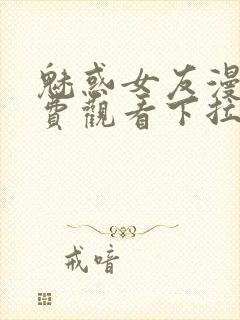 魅惑女友漫
費觀看下拉
戒喑